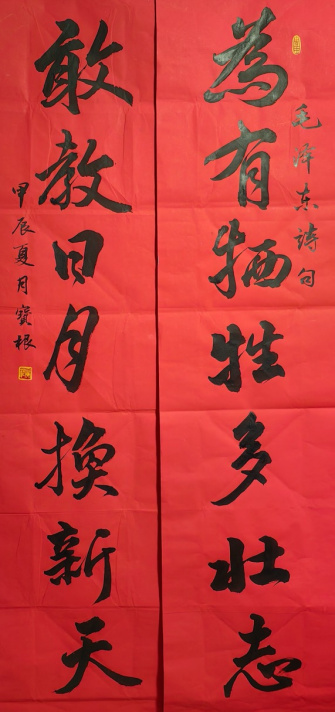 為有牺牲多壮志
毛泽东诗句
敢教日月换新天
甲辰夏月寶根